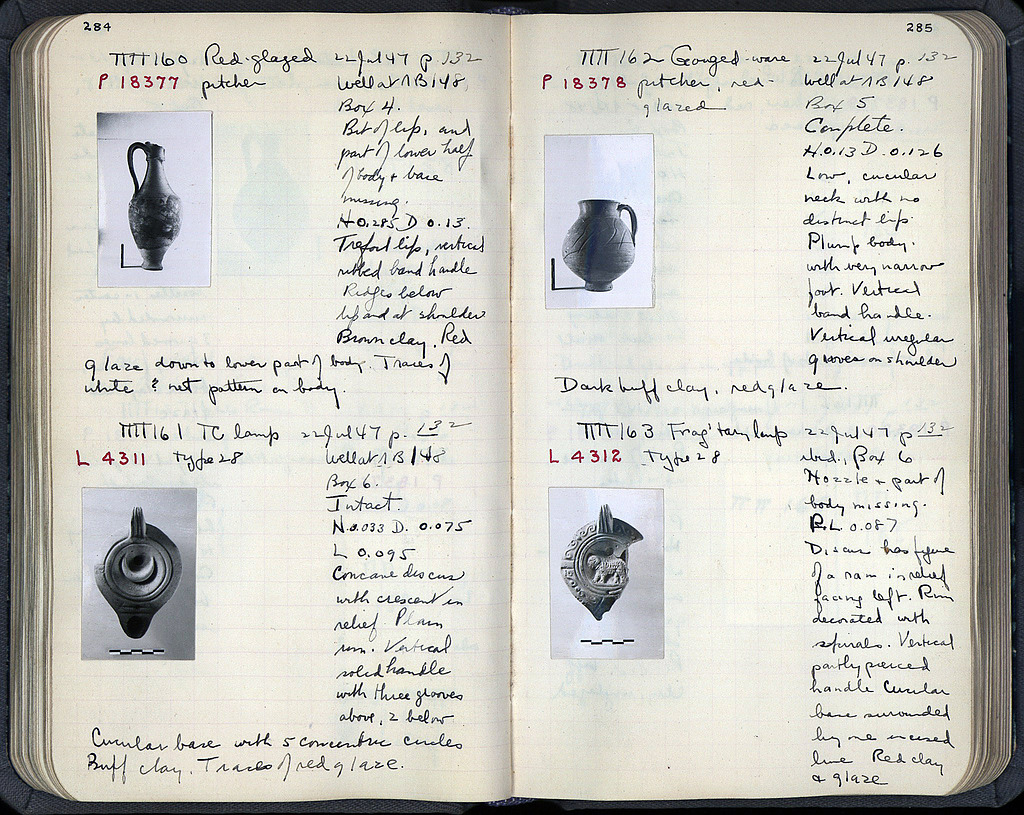 284
ΠΠ 160 Red-glazed 22 Jul 47 p. 132
P 18377 pitcher well at ΛB 148,
Box 4.
Bit of lip, and
part of lower half
of body + base
missing.
H 0.285 D 0.13.
Trefoil lip, vertical
ribbed band handle
Ridges below
lip and at shoulder
Brown clay, Red
glaze down to lower part of body. Traces of
white ? net pattern on body.
ΠΠ 161 TC lamp 22 Jul 47 p. 132
L 4311 Type 28 well at ΛB 148
Box 6.
Intact.
H 0.033 D. 0.075
L 0.095
Concave discus
with crescent in
relief. Plain
rim. Vertical
solid handle
with three grooves
above, 2 below.
Circular base with 5 concentric circles
Buff clay. Traces of red glaze.
285
ΠΠ 162 Gouged-ware 22 Jul 47 p. 132
P 18378 pitcher, red- well at ΛB 148
glazed Box 5
Complete.
H. 0.13 D. 0.126
Low, circular
neck with no
distinct lip.
Plump body.
with very narrow
foot. Vertical
band handle.
Vertical irregular
grooves on shoulder
Dark buff clay, red glaze.
ΠΠ 163 Frag'tary lamp 22 Jul 47 p 132
L 4312 Type 28 ibid., Box 6
Nozzle + part of
body missing.
P.L. 0.087
Discus has figure
of a ram in relief
facing left. Rim
decorated with
spirals. Vertical
partly pierced
handle Circular
base surrounded
by one incised
line Red clay
& glaze